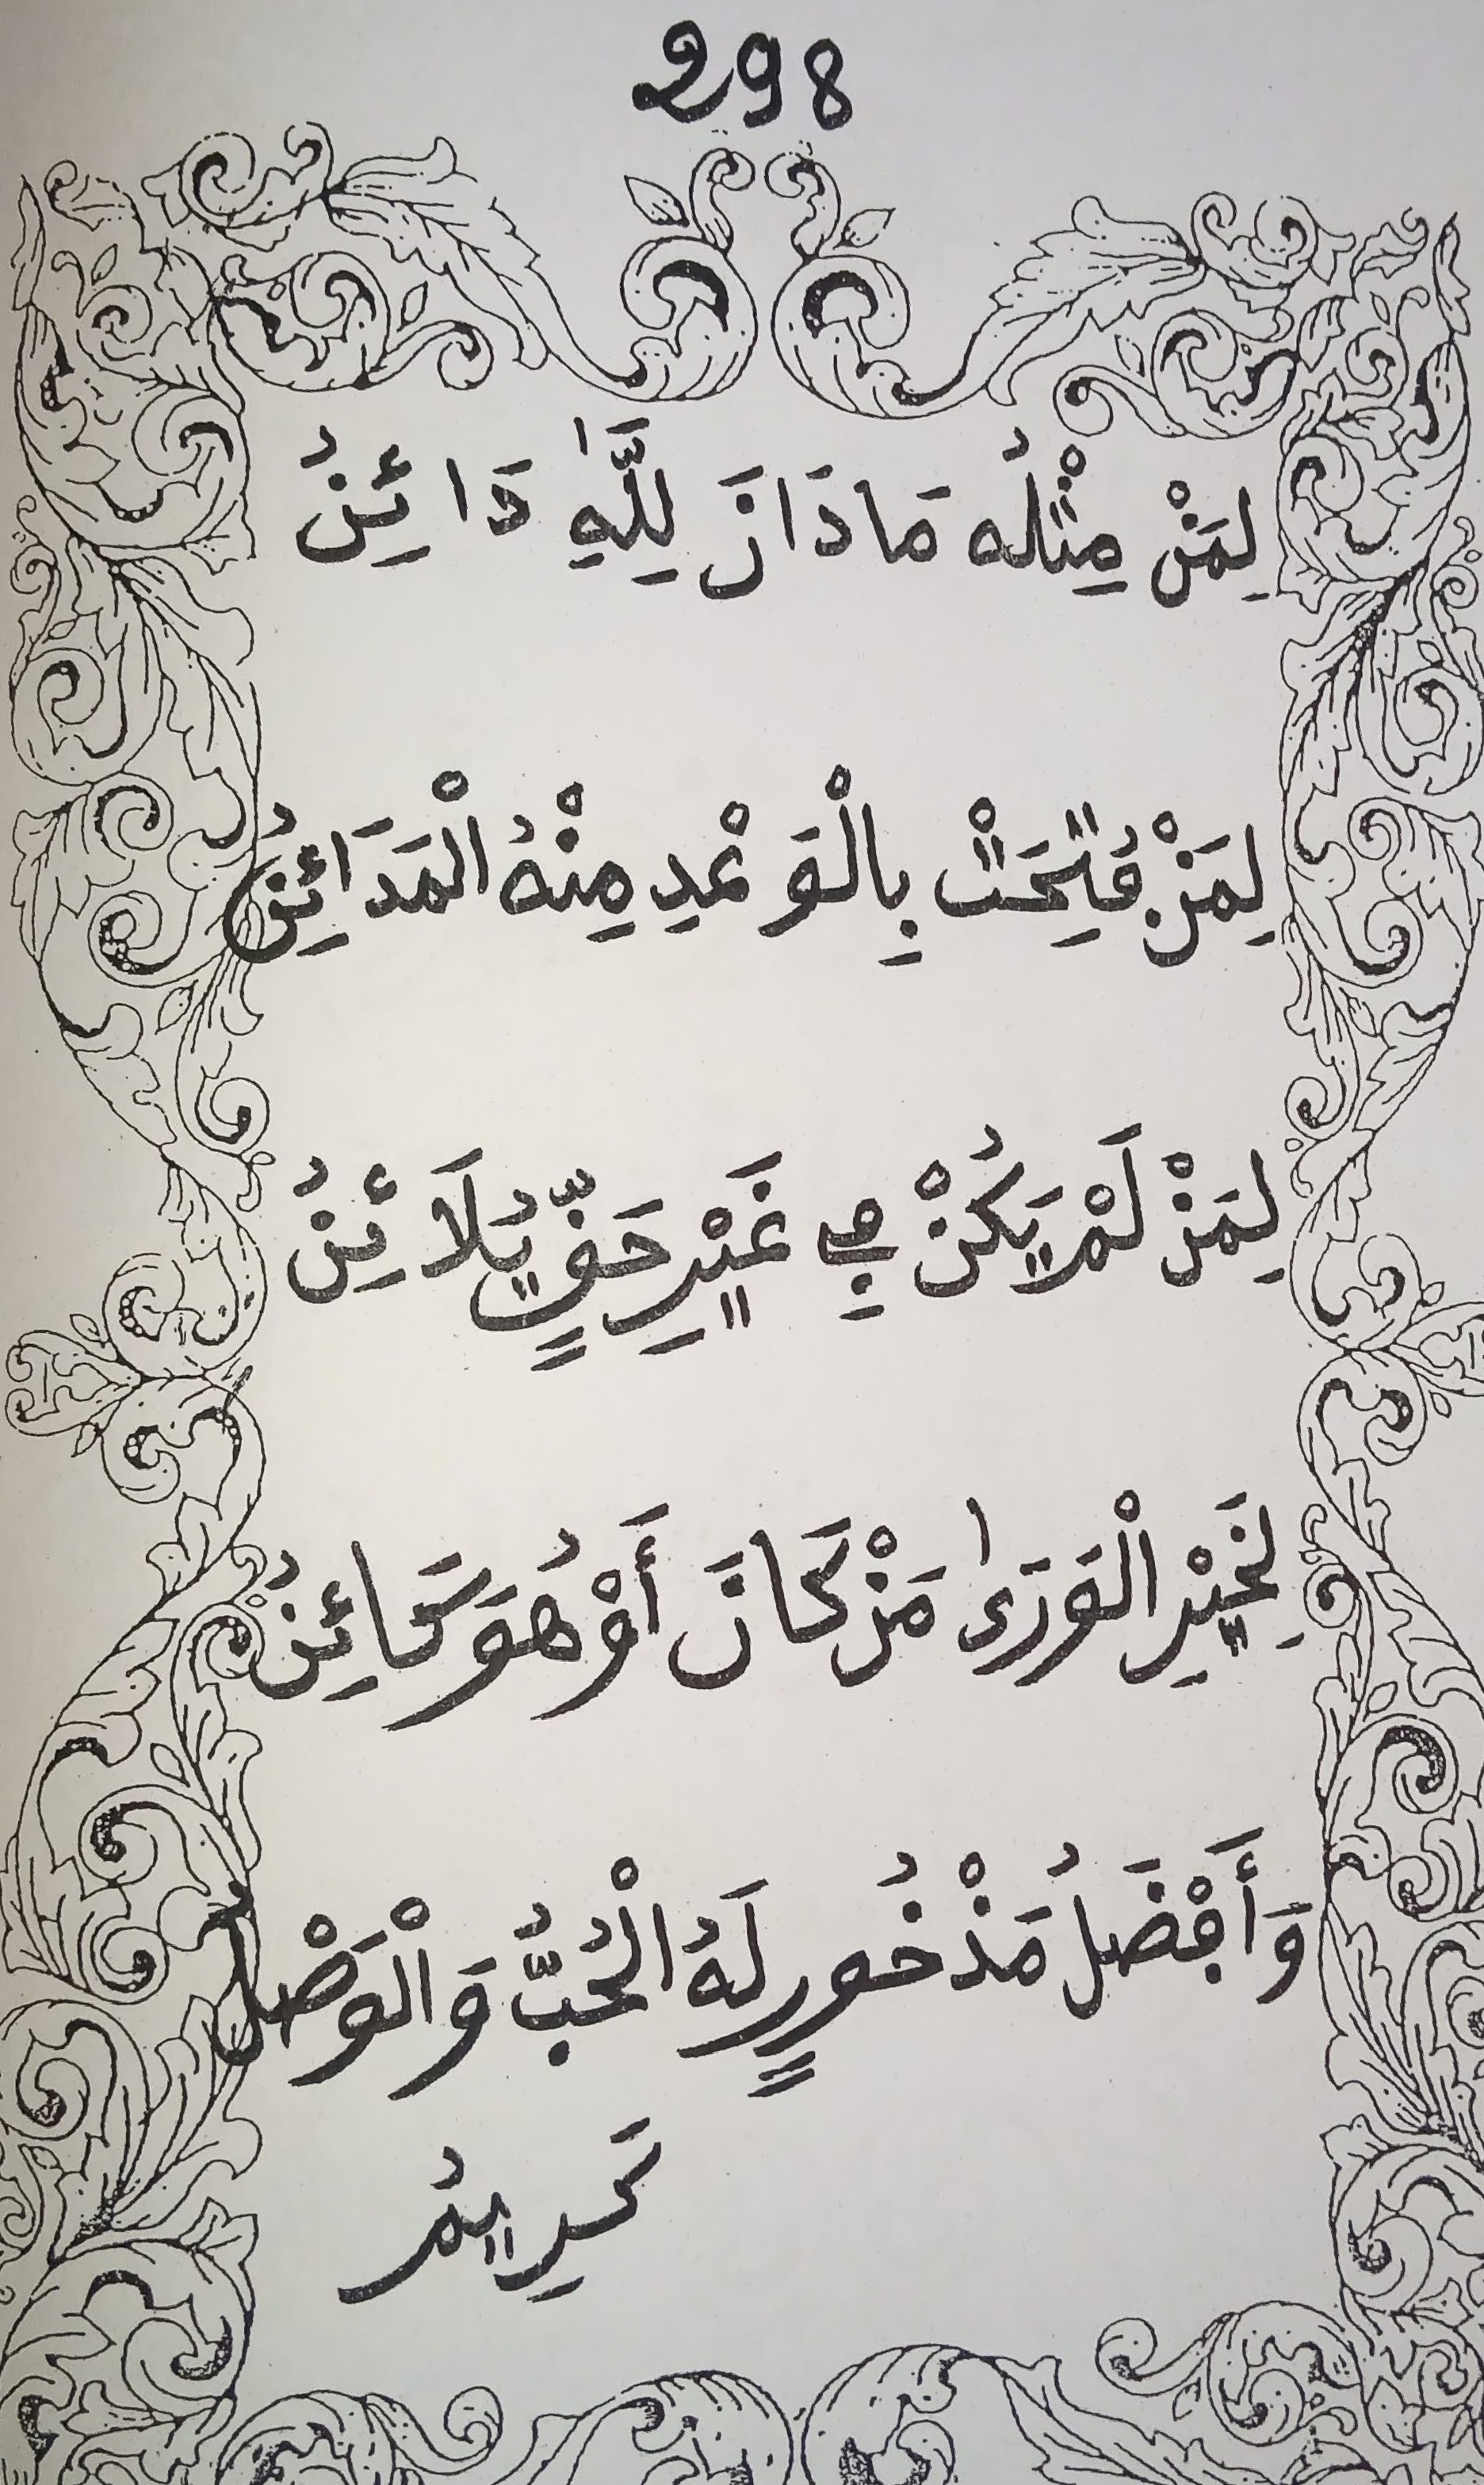 298
لِمَنْ مِثْلُه مَا دَانَ لِلَّهِ دَائِنُ
لِمَنْ فُتِحَتْ بِالْوَعْدِ مِنْهُ الْمَدَائِنُ
لِمَنْ لَمْ يَكُنْ فِي غَيْرِ حَقٍّ يُلَائِنُ
لِخَيْرِ الْوَرَىٰ مَنْ كَانَ أَوْ هُوَ كَائِنُ
وَأَفْضَلُ مَذْخُورٍ لَهُ الْحُبُّ وَالْوَصْلُ
كَرِيمُ